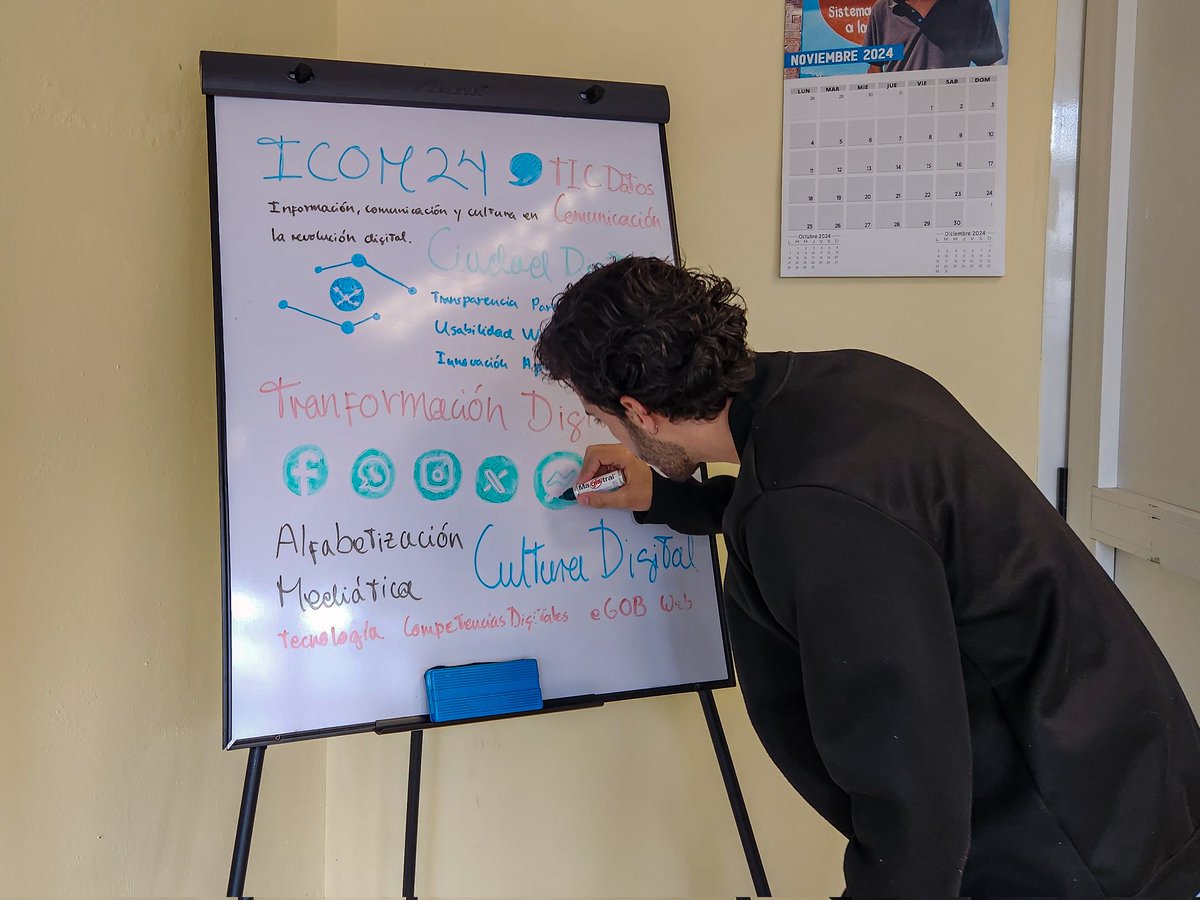 ICOM24 TIC Datos
Información, comunicación y cultura en Comunicación
la revolución digital.
Ciudad
Transparencia
Usabilidad
Innovación
Tranformación
Alfabetización
Mediática
Cultura Digital
Tecnología Competencias Digitales eGOB Web
Magistral
Sistema
a la
NOVIEMBRE 2024
LUN MAR MIE JUE VIE SAB DOM
28 29 30 31 1 2 3
4 5 6 7 8 9 10
11 12 13 14 15 16 17
18 19 20 21 22 23 24
25 26 27 28 29 30 1
Octubre 2024 Diciembre 2024
L M M J V S D L M M J V S D